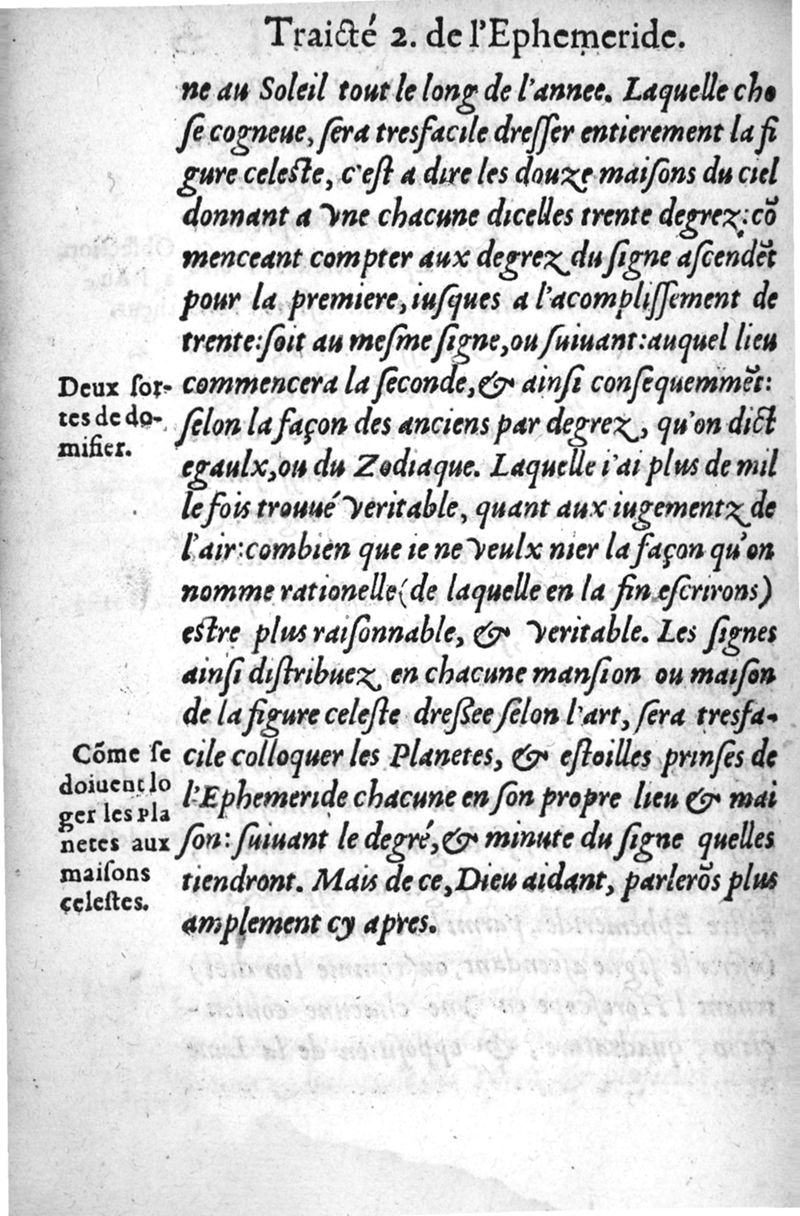 Traicté 2. de l'Ephemeride.
ne au Soleil tout le long de l'annee. Laquelle cho
ſe cogneue, ſera tresfacile dreſſer entierement la fi
gure celeſte, c'eſt a dire les douze maiſons du ciel
donnant a vne chacune dicelles trente degrez: cõ
menceant compter aux degrez du ſigne aſcendẽt
pour la premiere, iuſques a l'acompliſſement de
trente: ſoit au meſme ſigne, ou ſuiuant: auquel lieu
commencera la ſeconde, & ainſi conſequemmẽt:
ſelon la façon des anciens par degrez, qu'on dict
egaulx, ou du Zodiaque. Laquelle i'ai plus de mil
le fois trouué veritable, quant aux iugementz de
l'air: combien que ie ne veulx nier la façon qu'on
nomme rationelle (de laquelle en la fin eſcrirons)
eſtre plus raiſonnable, & veritable. Les ſignes
ainſi diſtribuez en chacune manſion ou maiſon
de la figure celeſte dreſſee ſelon l'art, ſera tresfa-
cile colloquer les Planetes, & eſtoilles prinſes de
l'Ephemeride chacune en ſon propre lieu & mai
ſon: ſuiuant le degré, & minute du ſigne quelles
tiendront. Mais de ce, Dieu aidant, parlerõs plus
amplement cy apres.
Deux ſor-
tes de do-
mifier.
Cõme ſe
doiuent lo
ger les Pla
netes aux
maiſons
celeſtes.